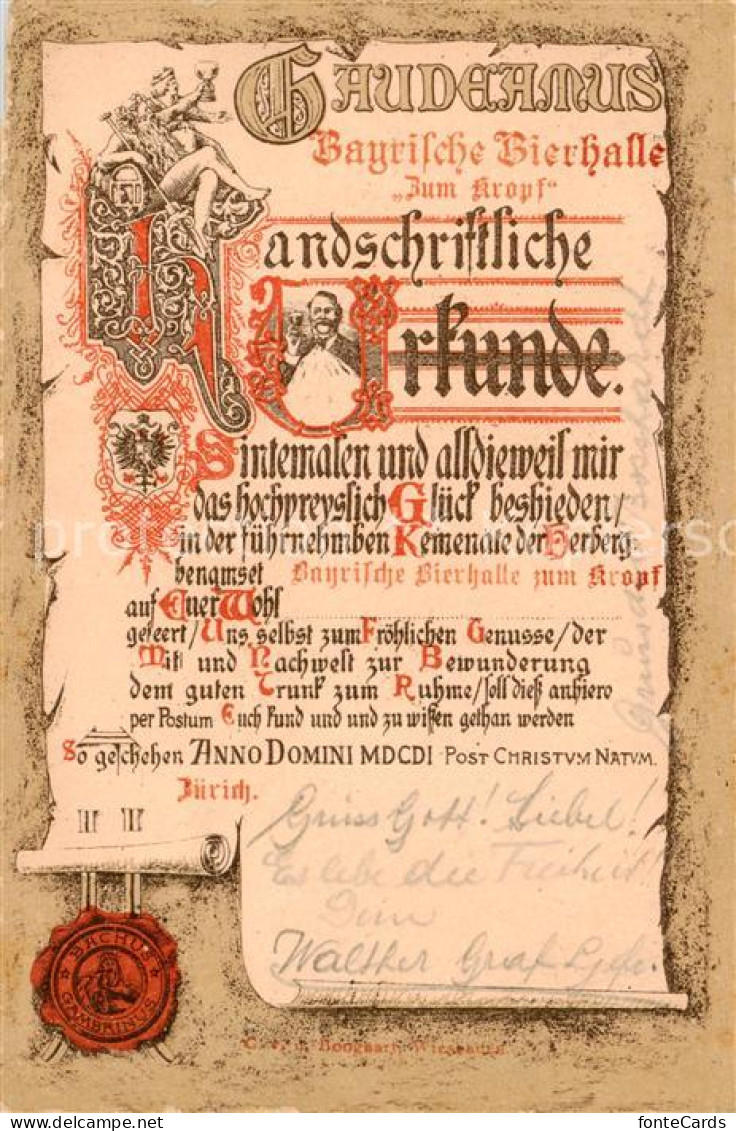 GAUDEAMUS
Bayrische Bierhalle
„Zum Kropf“
Handschriftliche
Urkunde.
Sintemalen und alldieweil mir
das hochpreyslich Glück beshieden/
in der führnehmben Kemenate der Herberg
benamset Bayrische Bierhalle zum Kropf
auf Euer Wohl
geleert/Uns selbst zum Fröhlichen Genusse/der
Mit und Nachwelt zur Bewunderung
dem guten Trunk zum Ruhme/soll dieß anhiero
per Postum Euch kund und und zu wissen gethan werden
So geschehen ANNO DOMINI MDCDI POST CHRISTVM NATVM.
Zürich.
Grüss Gott! Liebel!
Es lebe die Freiheit!
Dein
Walther Graf
BACHUS
GAMBRINUS
Wiesbaden
fonteCards